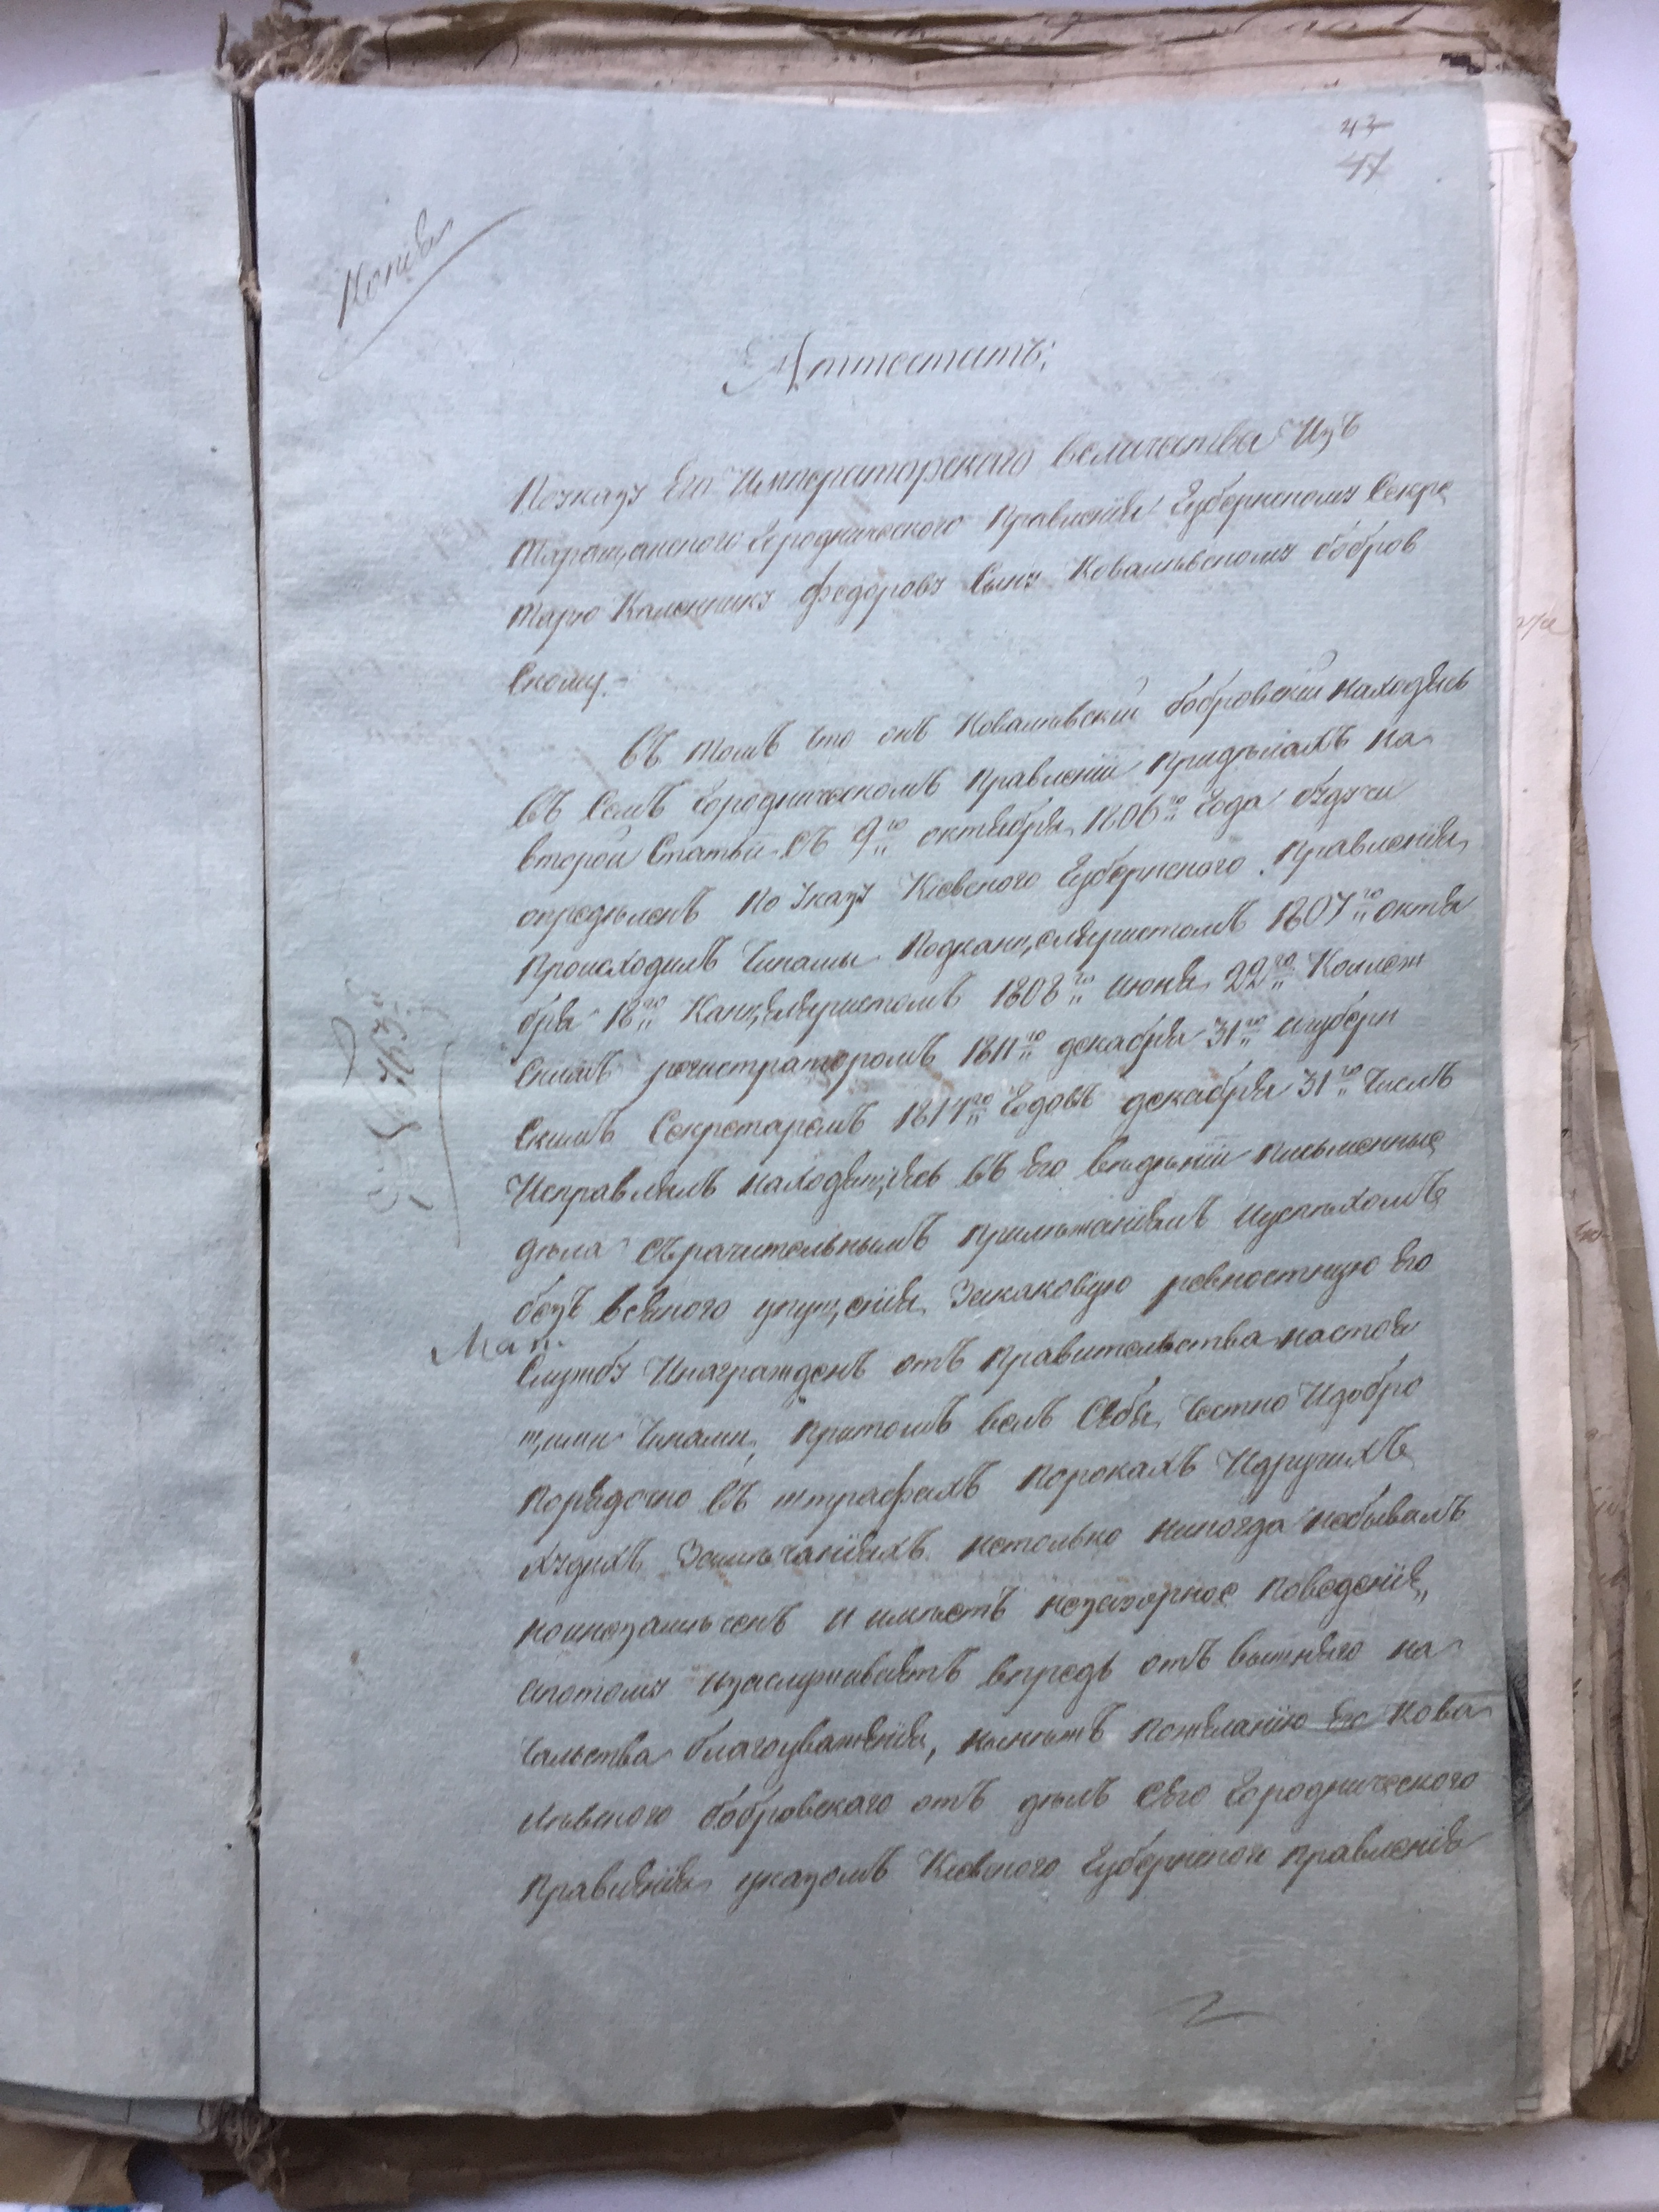 43
47
Копія
Аттестатъ;
Поуказу Его Императорскаго величества Изъ
Таращанского Городническаго правленія Губернскому Секре
тарю Каленнику федорову Сыну Ковалѣвскому бобров
скому.-
въ томъ что онъ Ковалѣвскій бобровскій находясь
въ Семъ Городническомъ правленіи придѣлахъ на
второй Статьи Съ 9го октября 1806го Года будучи
опредѣленъ по Указу Кіевского Губернского правленія
происходилъ Чинамы подканцеляристомъ 1807го октя
бря 18го Канцеляристомъ 1808го июня 22го Коллеж
скимъ регистраторомъ 1811го декабря 31го игуберн
скимъ Секретаремъ 1814го Годовъ декабря 31го Числъ
Исправлялъ находящіясь въ Его вѣдѣніи письменные
дѣла Срачительнымъ прилѣжаніемъ иуспѣхомъ
безъ всякого упущенія, Закаковую ревностную Его
Службу Инагражденъ отъ правительства настоя
щими Чинами, притомъ велъ Себя Честно Идобро
порядочно въ штрафахъ порокахъ Идругихъ
худыхъ Замѣчаніяхъ нетолько никогда небывалъ
ноинезамѣченъ и имѣетъ незазорное поведенія,
апотому изаслуживаетъ впредь отъ вышняго на
чальства благоуваженія, нынѣжъ пожеланію Его Кова
лѣвского бобровскаго отъ дѣлъ Сего Городническаго
правленія указомъ Кіевского Губернского правленія